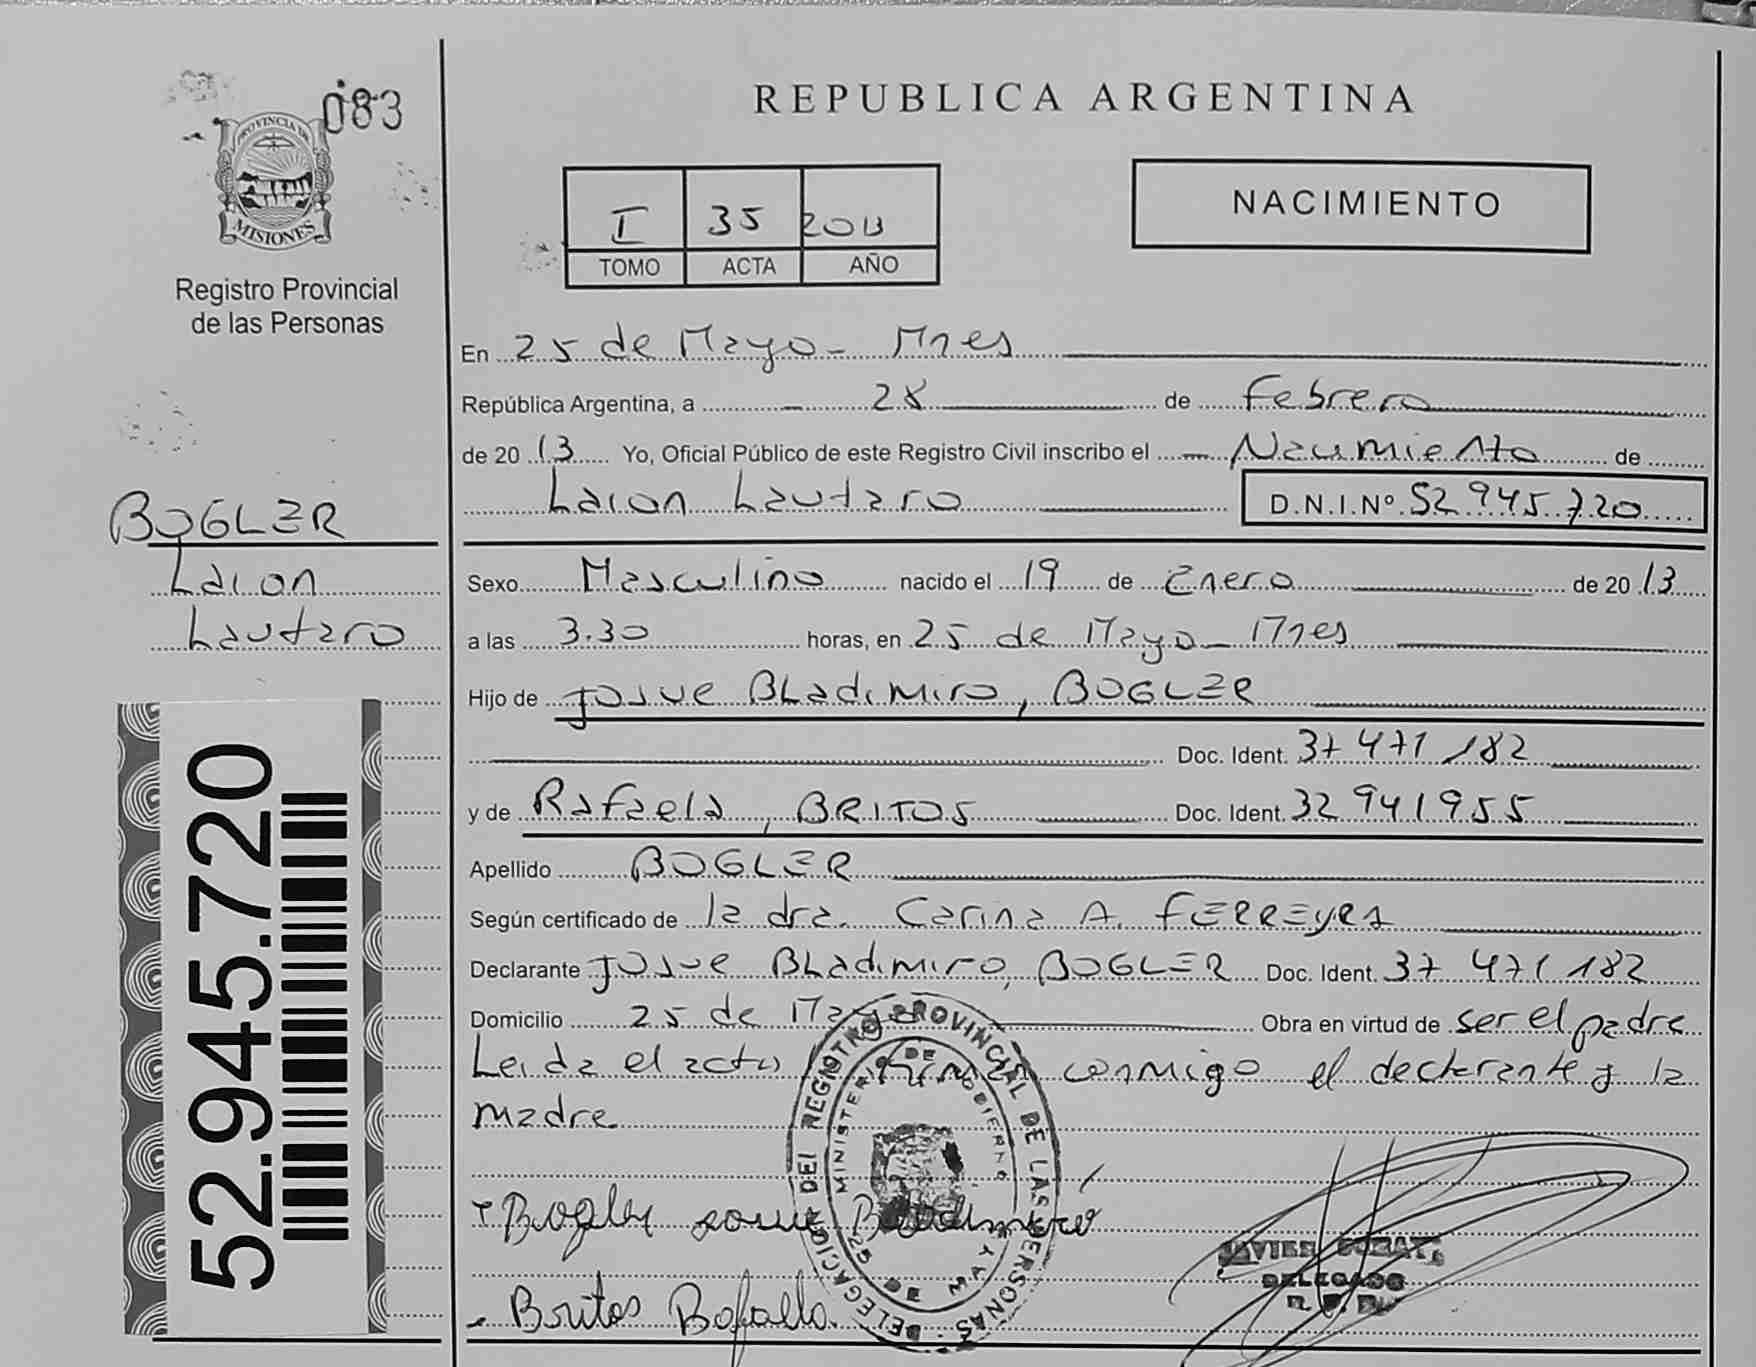 083
PROVINCIA DE
MISIONES
Registro Provincial
de las Personas
REPUBLICA ARGENTINA
I 35 2013
TOMO ACTA AÑO
NACIMIENTO
En 25 de Mayo - Mnes
República Argentina, a 28 de Febrero
de 2013 Yo, Oficial Público de este Registro Civil inscribo el Nacimiento de
Laion Lautaro D.N.I.Nº 52.945.720
BOGLER
Laion
Lautaro
Sexo Masculino nacido el 19 de Enero de 2013
a las 3.30 horas, en 25 de Mayo - Mnes
Hijo de Josue Bladimiro, BOGLER
Doc. Ident. 37 471 182
y de Rafaela, BRITOS Doc. Ident. 32 941955
Apellido BOGLER
Según certificado de la dra. Carina A. FERREyRA
Declarante Josue Bladimiro, BOGLER Doc. Ident. 37 471 182
Domicilio 25 de Mayo Obra en virtud de ser el padre
Leida el acta firma conmigo el declarante y la
madre
52.945.720
DELEGACION DEL REGISTRO PROVINCIAL DE LAS PERSONAS
MINISTERIO DE GOBIERNO
25 DE MAYO
Bogler Josue Bladimiro
JAVIER
DELEGADO
Britos Rafaela